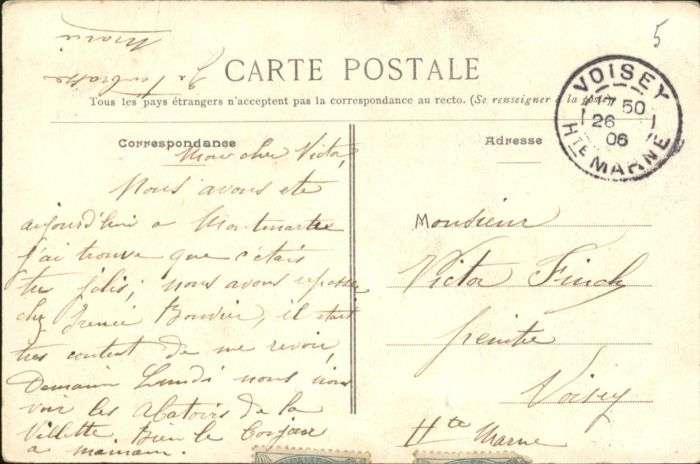 5
Je t'embrasse
Marie
CARTE POSTALE
Tous les pays étrangers n'acceptent pas la correspondance au recto. (Se renseigner à la poste)
VOISEY
50
26
06
Hte MARNE
Correspondance
Mon cher Victor,
Nous avons ete
aujourd'hui a Montmartre
j'ai trouve que c'etais
tres jolis; nous avons
chez Bouvier, il etait
tres content de me revoir,
Demain Lundi nous irons
voir les Abatoirs de la
Villette. Bien le bonjour
a maman.
Adresse
Monsieur
Victor Finch
peintre
Voisey
Hte Marne